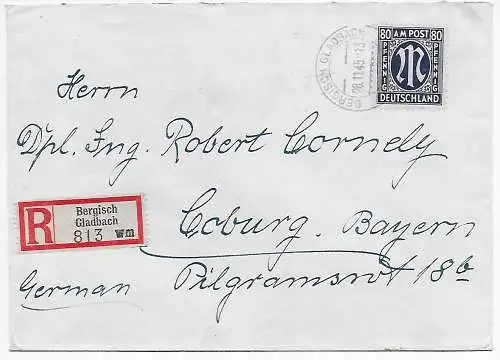 80 AM POST 80
PFENNIG PFENNIG
DEUTSCHLAND
BERGISCH GLADBACH
Herrn
Dpl. Ing. Robert Cornely
R Bergisch
Gladbach
813 wm
Coburg. Bayern
German Pilgramsrot 18b